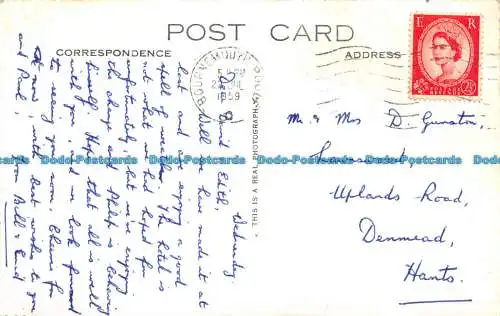 POST CARD
CORRESPONDENCE
ADDRESS
Wednesday.
Dear and Edith,
Well we have made it at
last and are enjoying a good
spell of weather. The hotel is
not what we had hoped for
unfortunately, but we're enjoying
the change and Philip is behaving
himself. Hope that all is well
with you and we look forward
to seeing you soon. Cheerio for
now, with best wishes to you
and Paul, from Bill & Enid
THIS IS A REAL PHOTOGRAPH
BOURNEMOUTH
JUL
1959
E R
POSTAGE REVENUE
2½D
Mr & Mrs D. Gunston,
Uplands Road,
Denmead,
Hants.
Dodo-Postcards Dodo-Postcards Dodo-Postcards Dodo-Postcards Dodo-Postcards